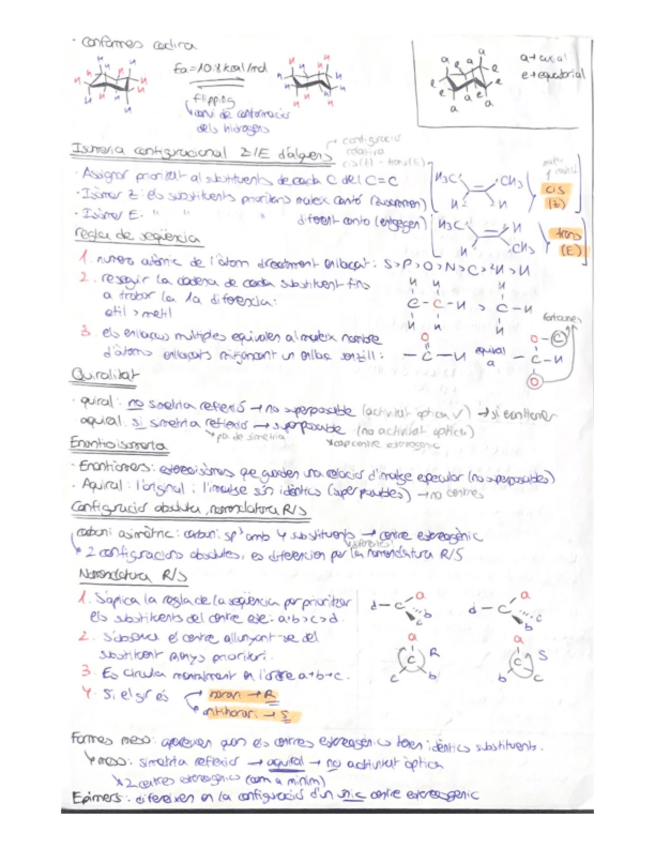 · conformes cadira
Ea = 10.8 kcal/mol
flipping
canvi de conformació
dels hidrogens
a → axial
e → equatorial
Isomeria configuracional Z/E d'alquens
configuració
relativa
cis (Z) - trans (E)
· Assignar prioritat al substituents de cada C del C=C
· Isòmer Z: els substituents prioritaris mateix cantó (zusammen)
· Isòmer E: " " " diferent cantó (entgegen)
H₃C CH₃
H H
cis
(Z)
H₃C H
H CH₃
trans
(E)
regla de seqüència
1. numero atòmic de l'àtom directament enllaçat: S > P > O > N > C > ²H > H
2. reseguir la cadena de cada substituent fins
a trobar la 1a diferència:
etil > metil
3. els enllaços múltiples equivalen al mateix nombre
d'àtoms enllaçats mitjançant un enllaç senzill:
equival
a
fantasmes
Quiralitat
· quiral: no simetria reflexió → no superposable (activitat òptica √)
aquiral: si simetria reflexió → superposable (no activitat òptica)
pla de simetria
cap centre estereogènic
Enantioisomeria
· Enantiòmers: estereoisòmers que guarden una relació d'imatge especular (no superposables)
· Aquiral: l'original i l'imatge són idèntics (superposables) → no centres
Configuració absoluta, nomenclatura R/S
carboni asimètric: carboni sp³ amb 4 substituents → centre estereogènic
diferents
2 configuracions absolutes, es diferencien per la nomenclatura R/S
Nomenclatura R/S
1. S'aplica la regla de la seqüència per prioritzar
els substituents del centre este: a>b>c>d.
2. S'observa el centre allunyant-se del
substituent menys prioritari.
3. Es circula mentalment en l'ordre a→b→c.
4. Si el gir és
horari → R
antihorari → S
a
d - C
b
c
a
d - C
c
b
a
C
R
c b
a
C
S
b c
Formes meso: apareixen quan els centres estereogènics tenen idèntics substituents.
meso: simetria reflexió → aquiral → no activitat òptica
2 centres estereogènics (com a mínim)
Epímers: difereixen en la configuració d'un únic centre estereogènic